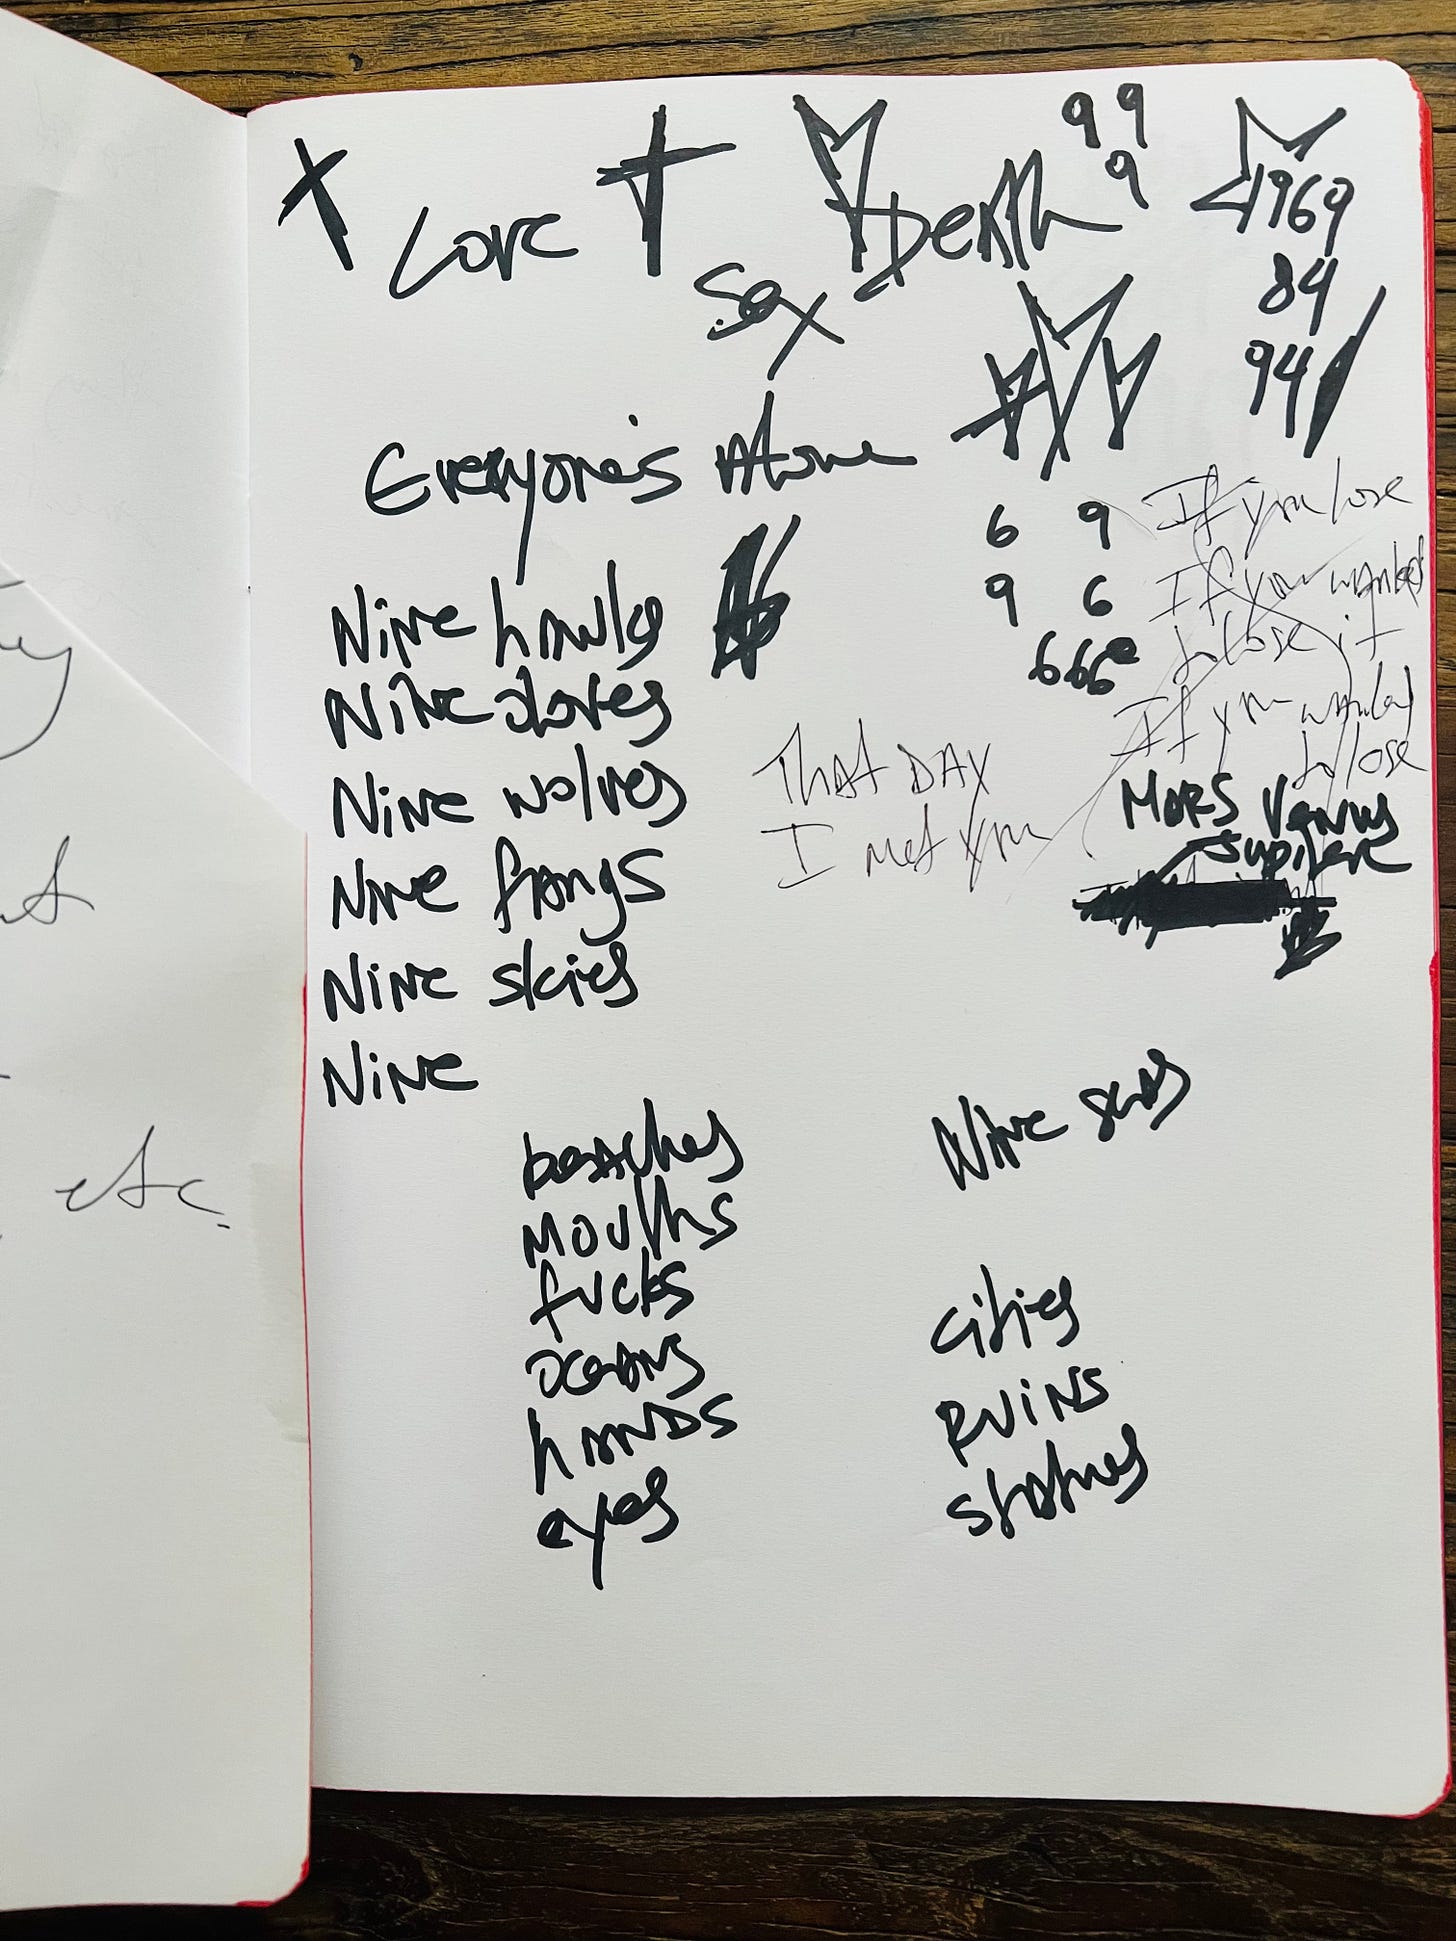 Love
Sex
Death
99
9
1969
84
94
Everyone's Alone
6 9
9 6
666
If you lose
If you wanted
to lose it
If you wanted
to lose
Nine hawks
Nine doves
Nine wolves
Nine fangs
Nine skies
Nine
That DAY
I met you
MARS Venus
Jupiter
beaches
Mouths
fucks
oceans
hANDS
eyes
Nine
cities
RUiNS
statues
etc.